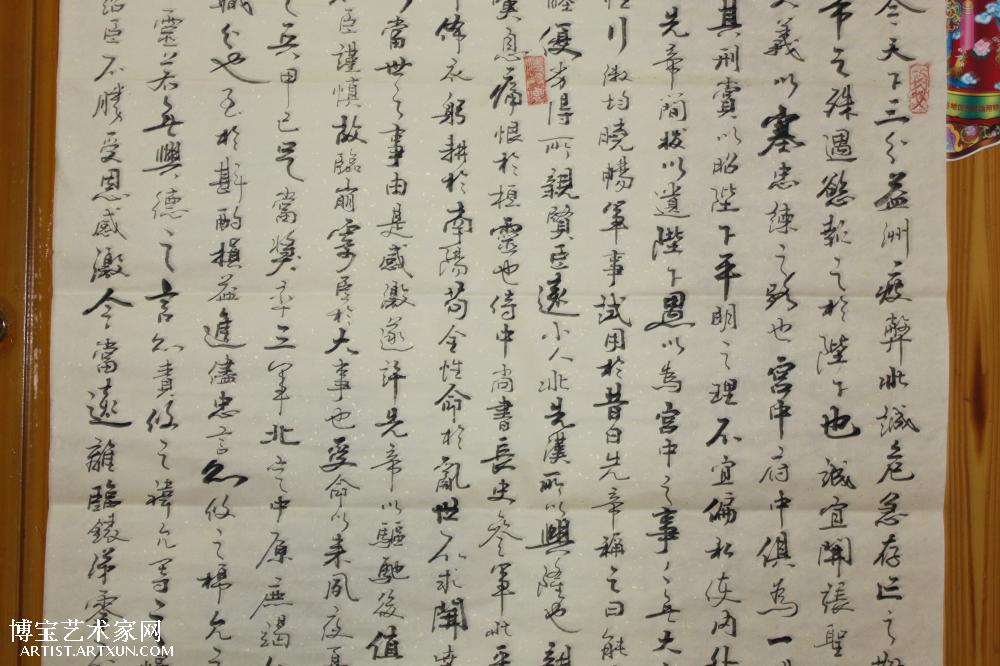 今天下三分益洲疲弊此誠危急存亡之
帝之殊遇慾報之於陛下也誠宜開張聖
義以塞忠諫之路也宮中府中俱為一
其刑賞以昭陛下平明之理不宜偏私使內外
先帝簡拔以遺陛下愚以為宮中之事〻無大
性行淑均曉暢軍事試用於昔日先帝稱之曰能
睦優劣得所親賢臣遠小人此先漢所以興隆也親
嘆息痛恨於桓靈也侍中尚書長史參軍此
布衣躬耕於南陽苟全性命於亂世不求聞
當世之事由是感激遂許先帝以驅馳後值
臣謹慎故臨崩寄臣於大事也受命以來夙夜
之兵甲已足當獎率三軍北定中原庶竭
職分也至於斟酌損益進儘忠言則攸之禕允之
靈若無興德之言則責攸之禕允等之
臣不勝受恩感激今當遠離臨錶涕零
博宝艺术家网
ARTIST.ARTXUN.COM